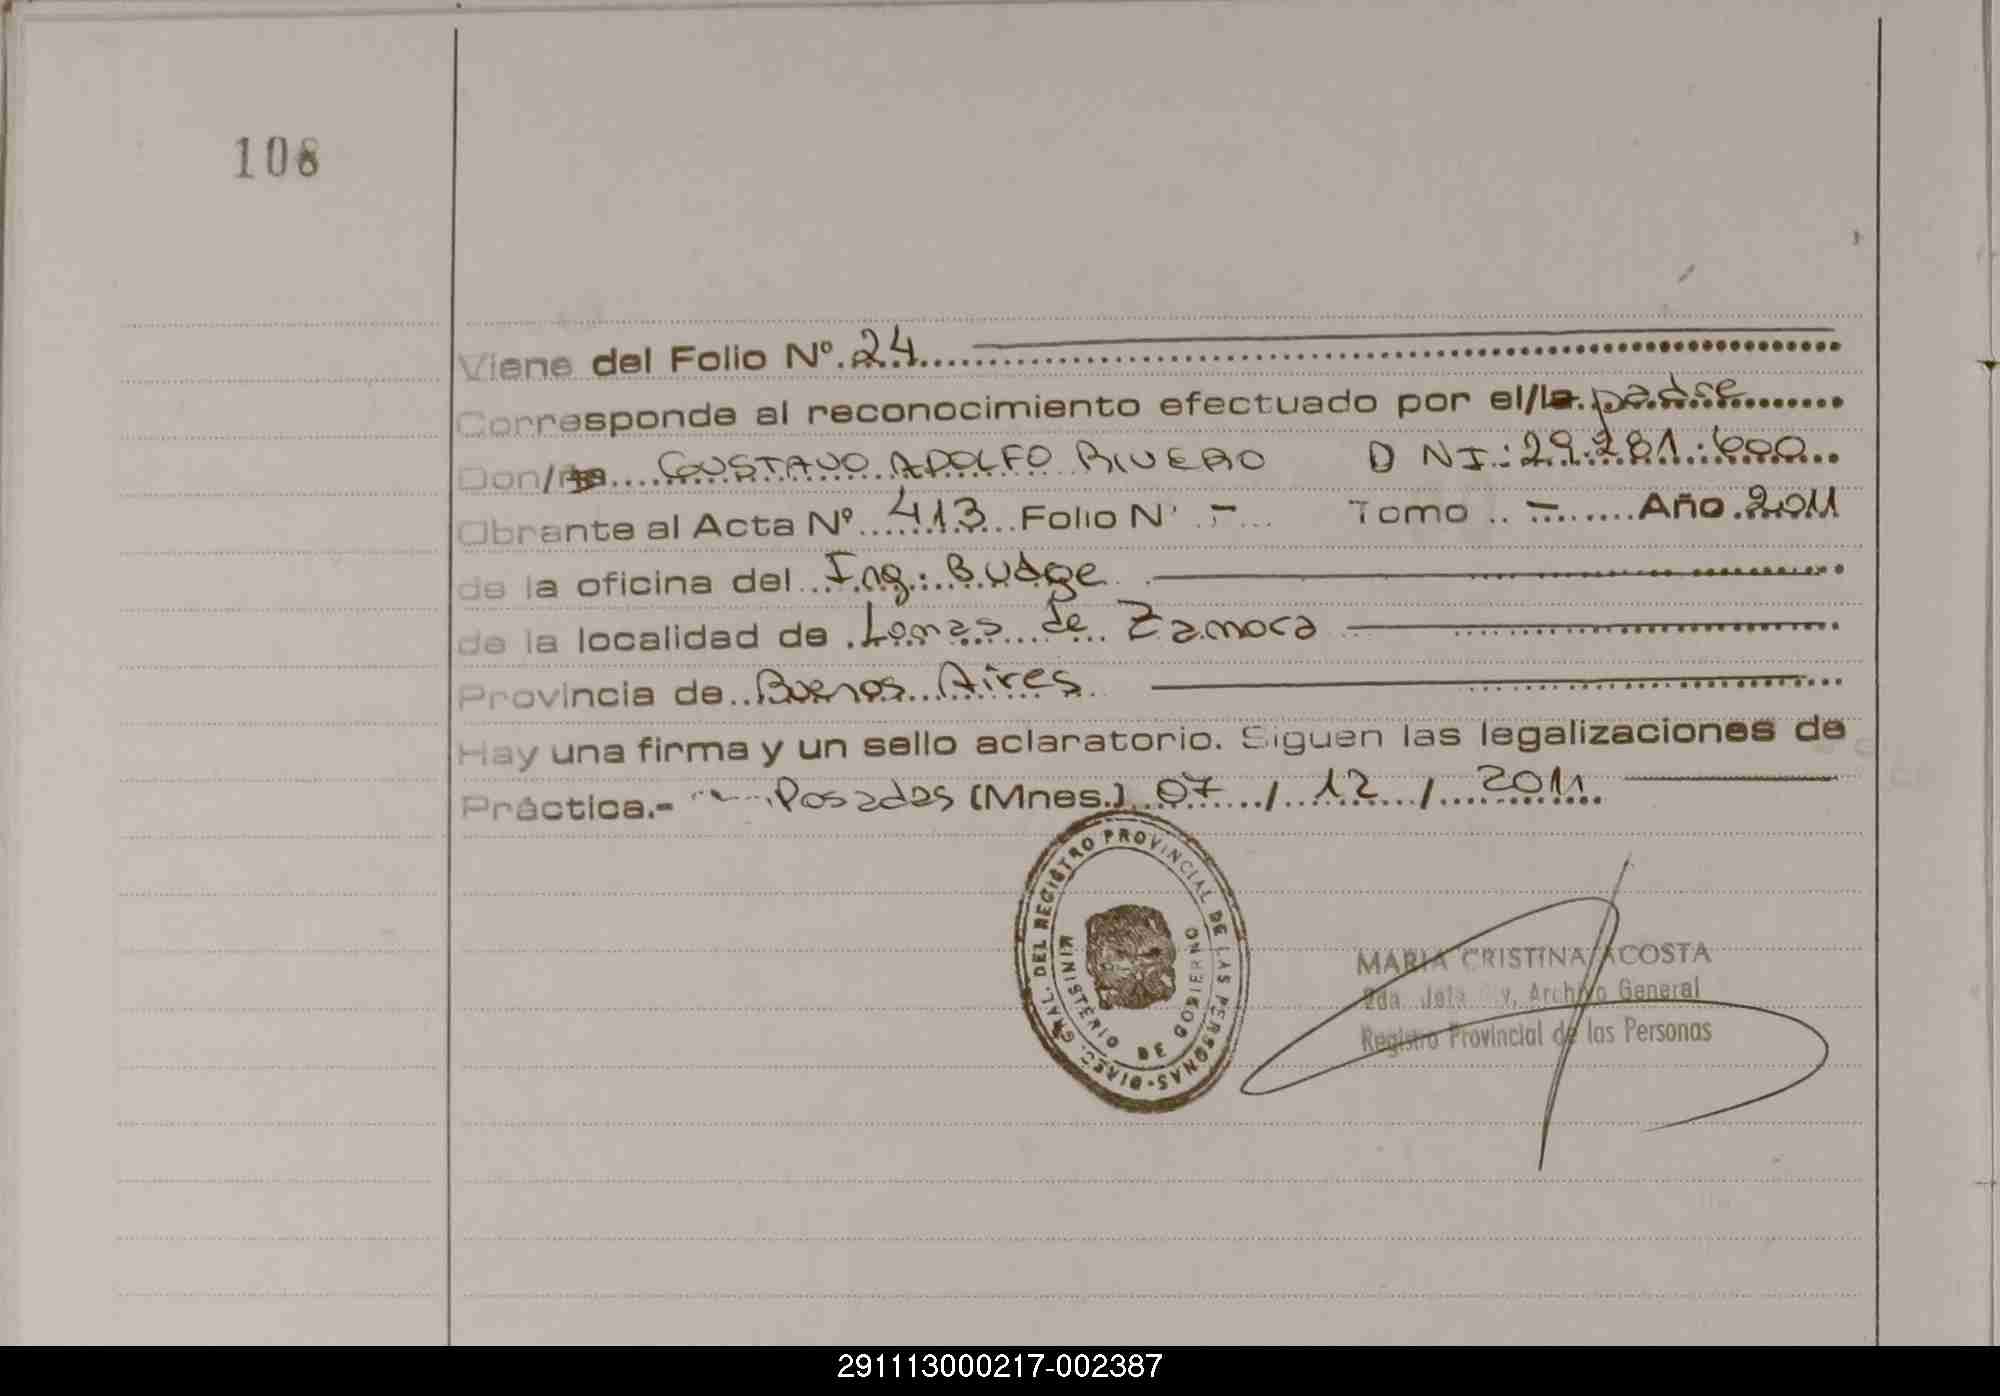 108
Viene del Folio Nº. 24
Corresponde al reconocimiento efectuado por el/la padre
Don/ña GUSTAVO ADOLFO RIVERO D NI: 29.281.600
Obrante al Acta Nº 413 Folio Nº - Tomo - Año 2011
de la oficina del Ing: Budge
de la localidad de Lomas de Zamora
Provincia de Buenos Aires
Hay una firma y un sello aclaratorio. Siguen las legalizaciones de
Práctica.- Posadas (Mnes.) 07 / 12 / 2011
DIREC. GRAL. DEL REGISTRO PROVINCIAL DE LAS PERSONAS
MINISTERIO DE GOBIERNO
MARIA CRISTINA ACOSTA
2da. Jefa y, Archivo General
Registro Provincial de las Personas
291113000217-002387